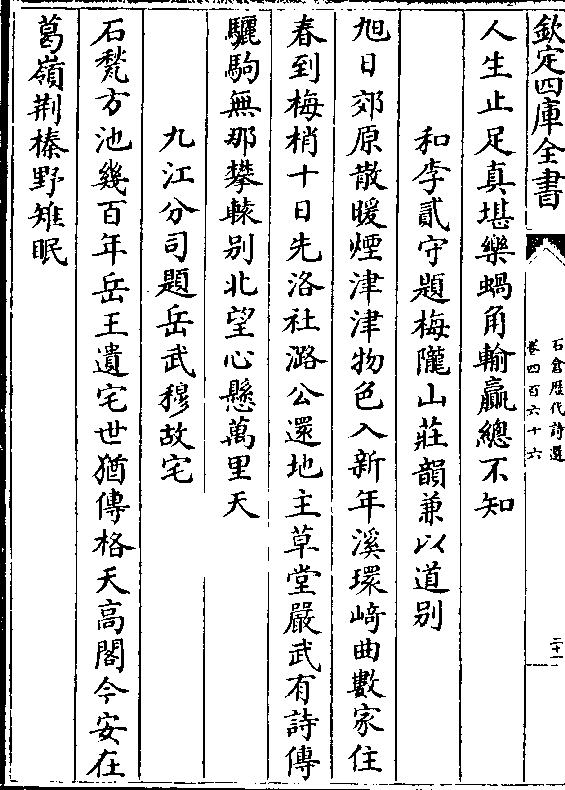 欽定四庫全書
石倉歷代詩選
卷四百六十六
二十一
人生止足真堪樂蝸角輸贏總不知
和李貳守題梅隴山莊韻兼以道别
旭日郊原散暖煙津津物色入新年溪環﨑曲數家住
春到梅梢十日先洛社潞公還地主草堂嚴武有詩傳
驪駒無那攀轅别北望心懸萬里天
九江分司題岳武穆故宅
石甃方池幾百年岳王遺宅世猶傳格天高閣今安在
葛嶺荆榛野雉眠